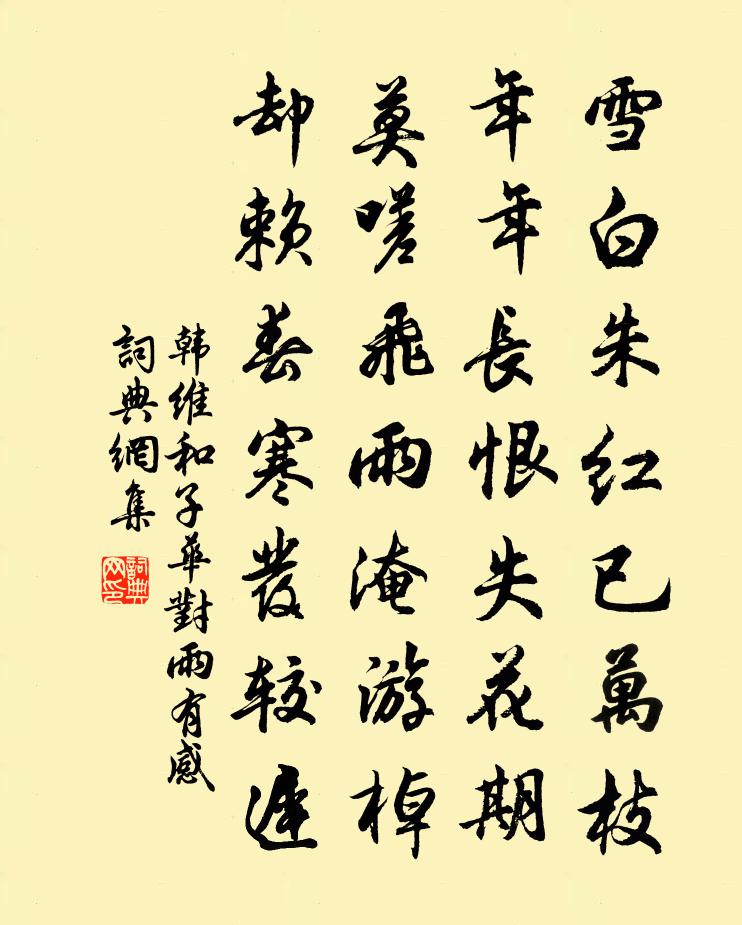 雪白朱红已萬枝
年年長恨失花期
莫嗟飛雨淹游棹
却賴春寒發較遲
韩維和子華對雨有感
詞典網集
詞典網印